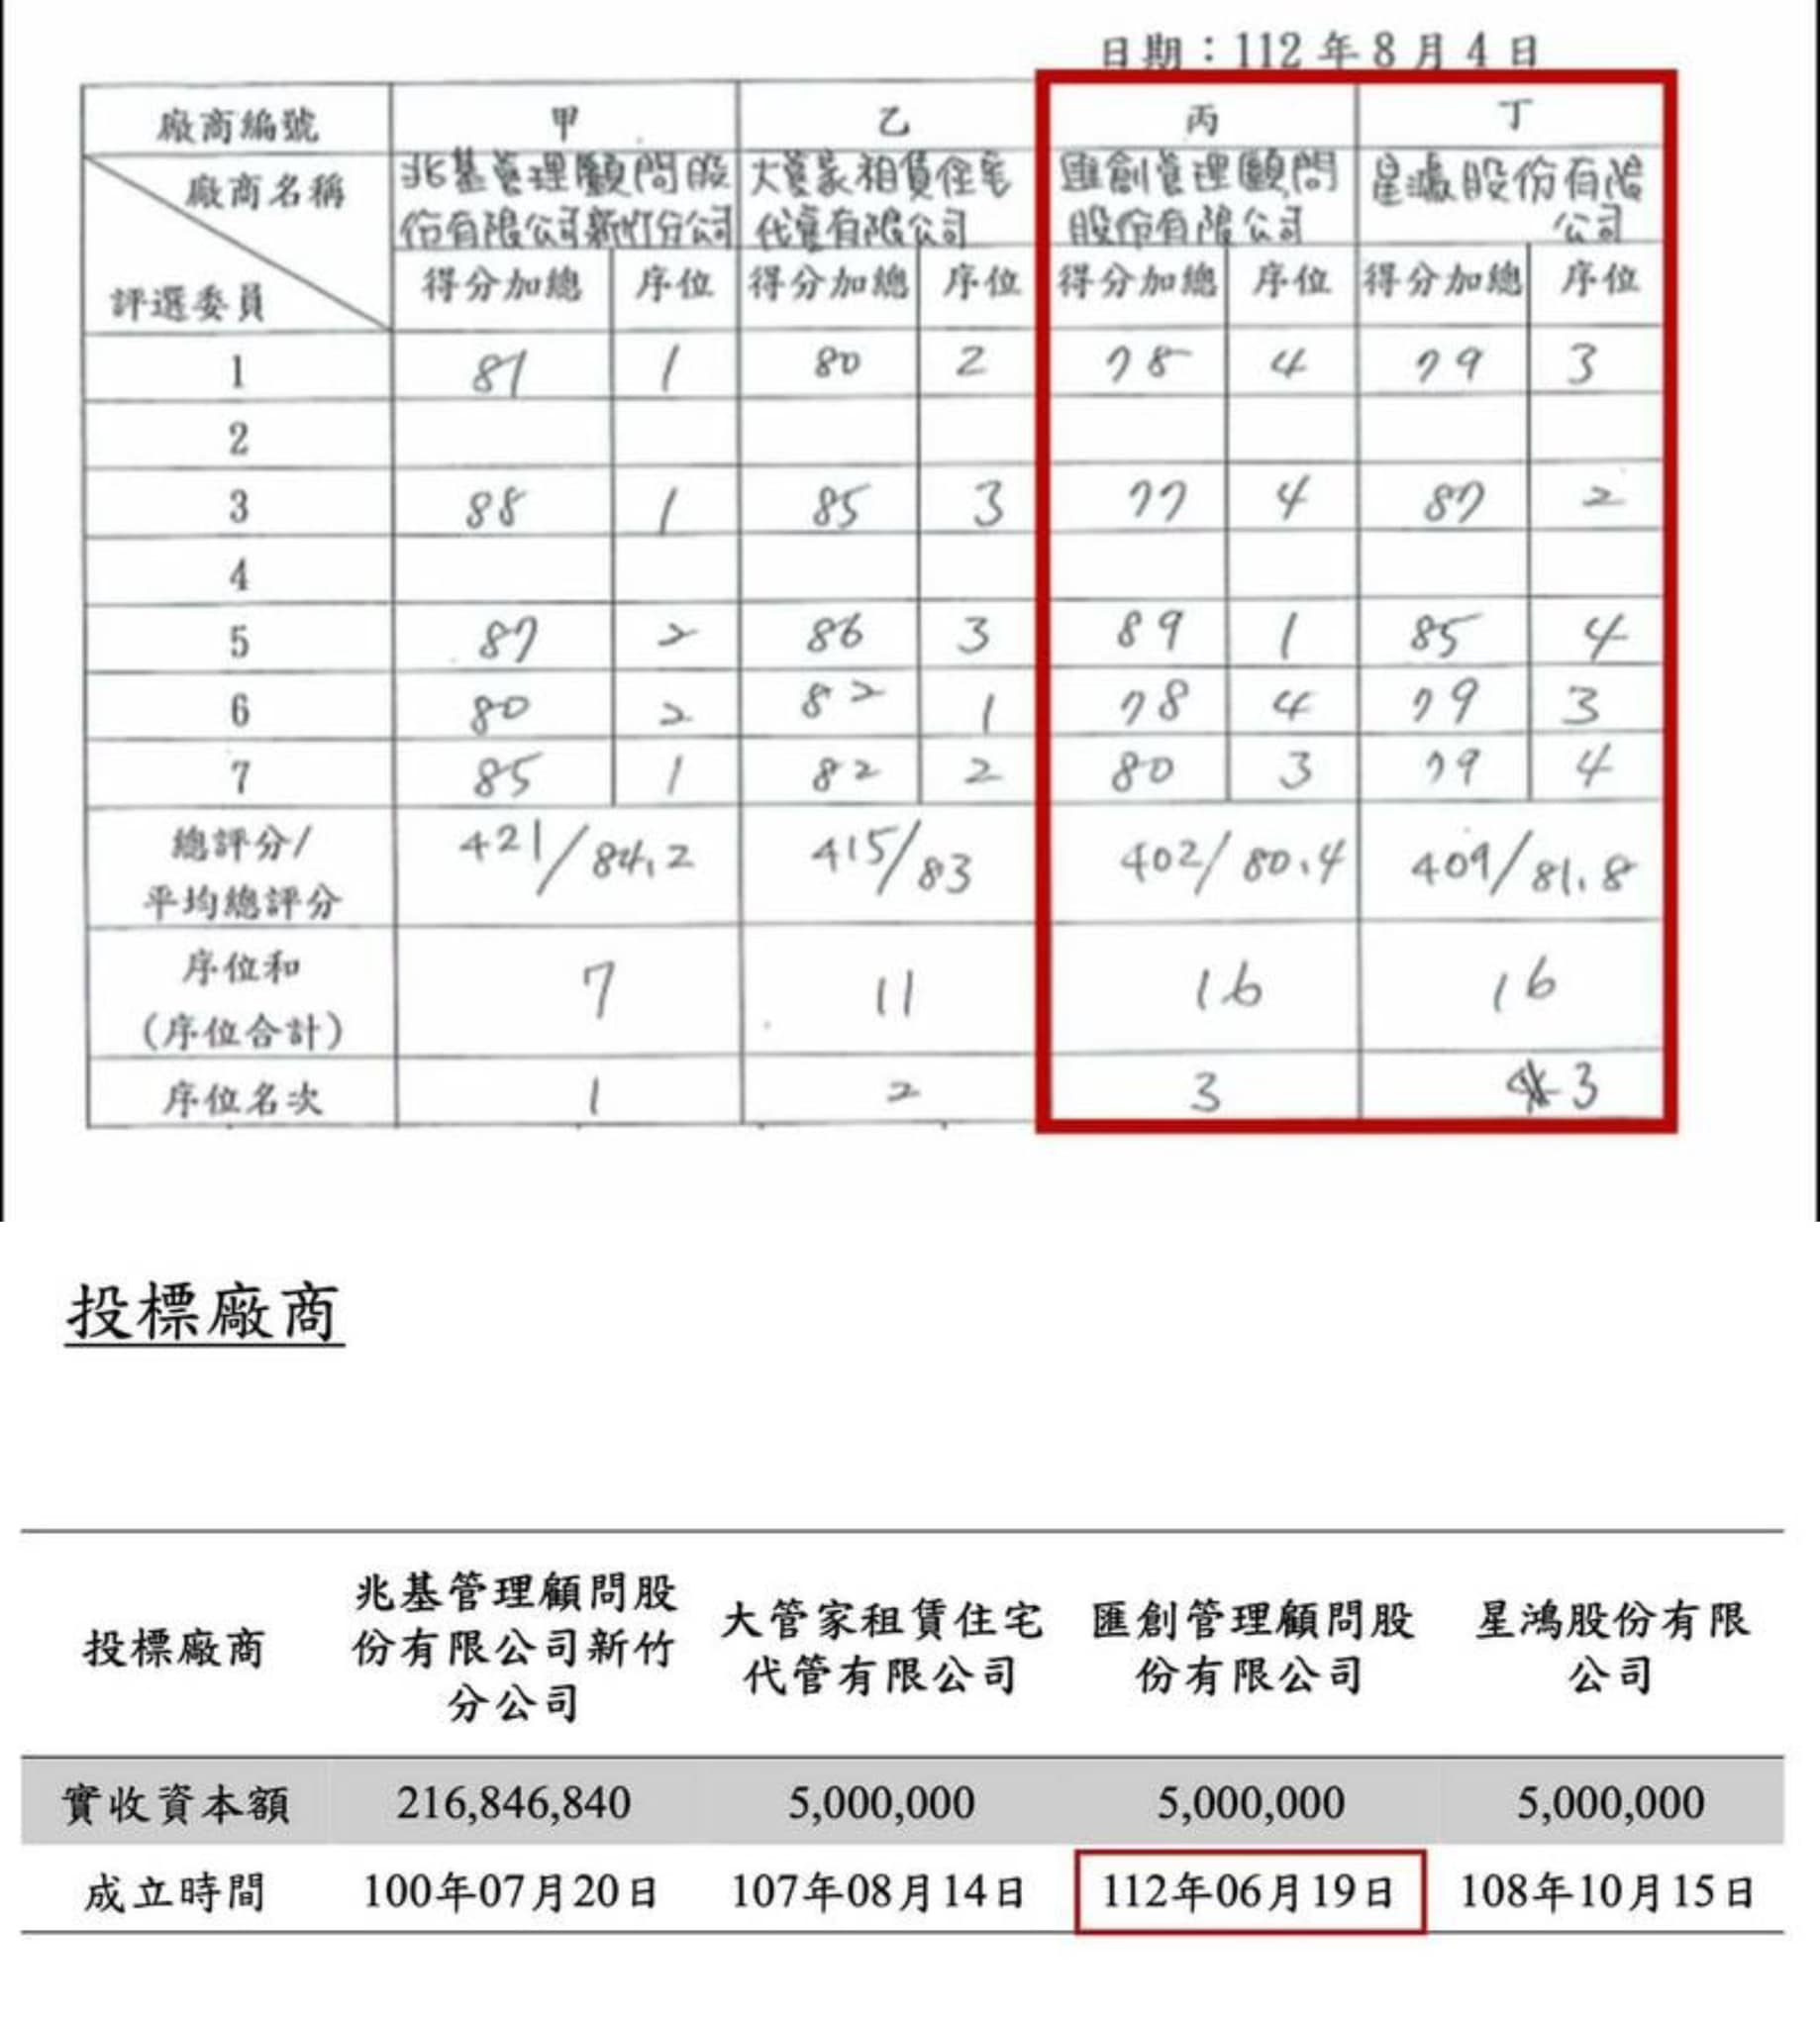 日期：112年8月4日
廠商編號 甲 乙 丙 丁
廠商名稱
兆基管理顧問股份有限公司新竹分公司
大管家租賃住宅代管有限公司
匯創管理顧問股份有限公司
星鴻股份有限公司
評選委員 得分加總 序位 得分加總 序位 得分加總 序位 得分加總 序位
1 81 1 80 2 78 4 79 3
2
3 88 1 85 3 77 4 87 2
4
5 87 2 86 3 89 1 85 4
6 80 2 82 1 78 4 79 3
7 85 1 82 2 80 3 79 4
總評分/
平均總評分
421/84.2 415/83 402/80.4 409/81.8
序位和
(序位合計)
7 11 16 16
序位名次 1 2 3 3
投標廠商
投標廠商
兆基管理顧問股
份有限公司新竹
分公司
大管家租賃住宅
代管有限公司
匯創管理顧問股
份有限公司
星鴻股份有限
公司
實收資本額 216,846,840 5,000,000 5,000,000 5,000,000
成立時間 100年07月20日 107年08月14日 112年06月19日 108年10月15日